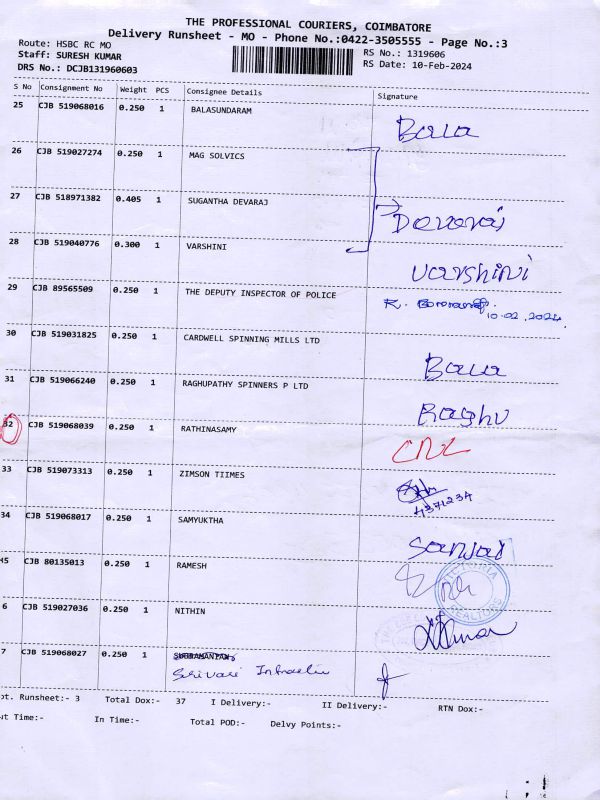 THE PROFESSIONAL COURIERS, COIMBATORE
Delivery Runsheet - MO - Phone No.:0422-3505555 - Page No.:3
Route: HSBC RC MO
RS No.: 1319606
Staff: SURESH KUMAR
RS Date: 10-Feb-2024
DRS No.: DCJB131960603
S No Consignment No Weight PCS Consignee Details Signature
25 CJB 519068016 0.250 1 BALASUNDARAM Bala
26 CJB 519027274 0.250 1 MAG SOLVICS
27 CJB 518971382 0.405 1 SUGANTHA DEVARAJ Devaraj
28 CJB 519040776 0.300 1 VARSHINI Varshini
29 CJB 89565509 0.250 1 THE DEPUTY INSPECTOR OF POLICE R. 10.02.2024.
30 CJB 519031825 0.250 1 CARDWELL SPINNING MILLS LTD Bala
31 CJB 519066240 0.250 1 RAGHUPATHY SPINNERS P LTD Raghu
32 CJB 519068039 0.250 1 RATHINASAMY CNL
33 CJB 519073313 0.250 1 ZIMSON TIIMES 4371234
34 CJB 519068017 0.250 1 SAMYUKTHA Sanjai
35 CJB 80135013 0.250 1 RAMESH
VICTORIA REALTORS
6 CJB 519027036 0.250 1 NITHIN
7 CJB 519068027 0.250 1
Srivari
pt. Runsheet:- 3 Total Dox:- 37 I Delivery:- II Delivery:- RTN Dox:-
ut Time:- In Time:- Total POD:- Delvy Points:-